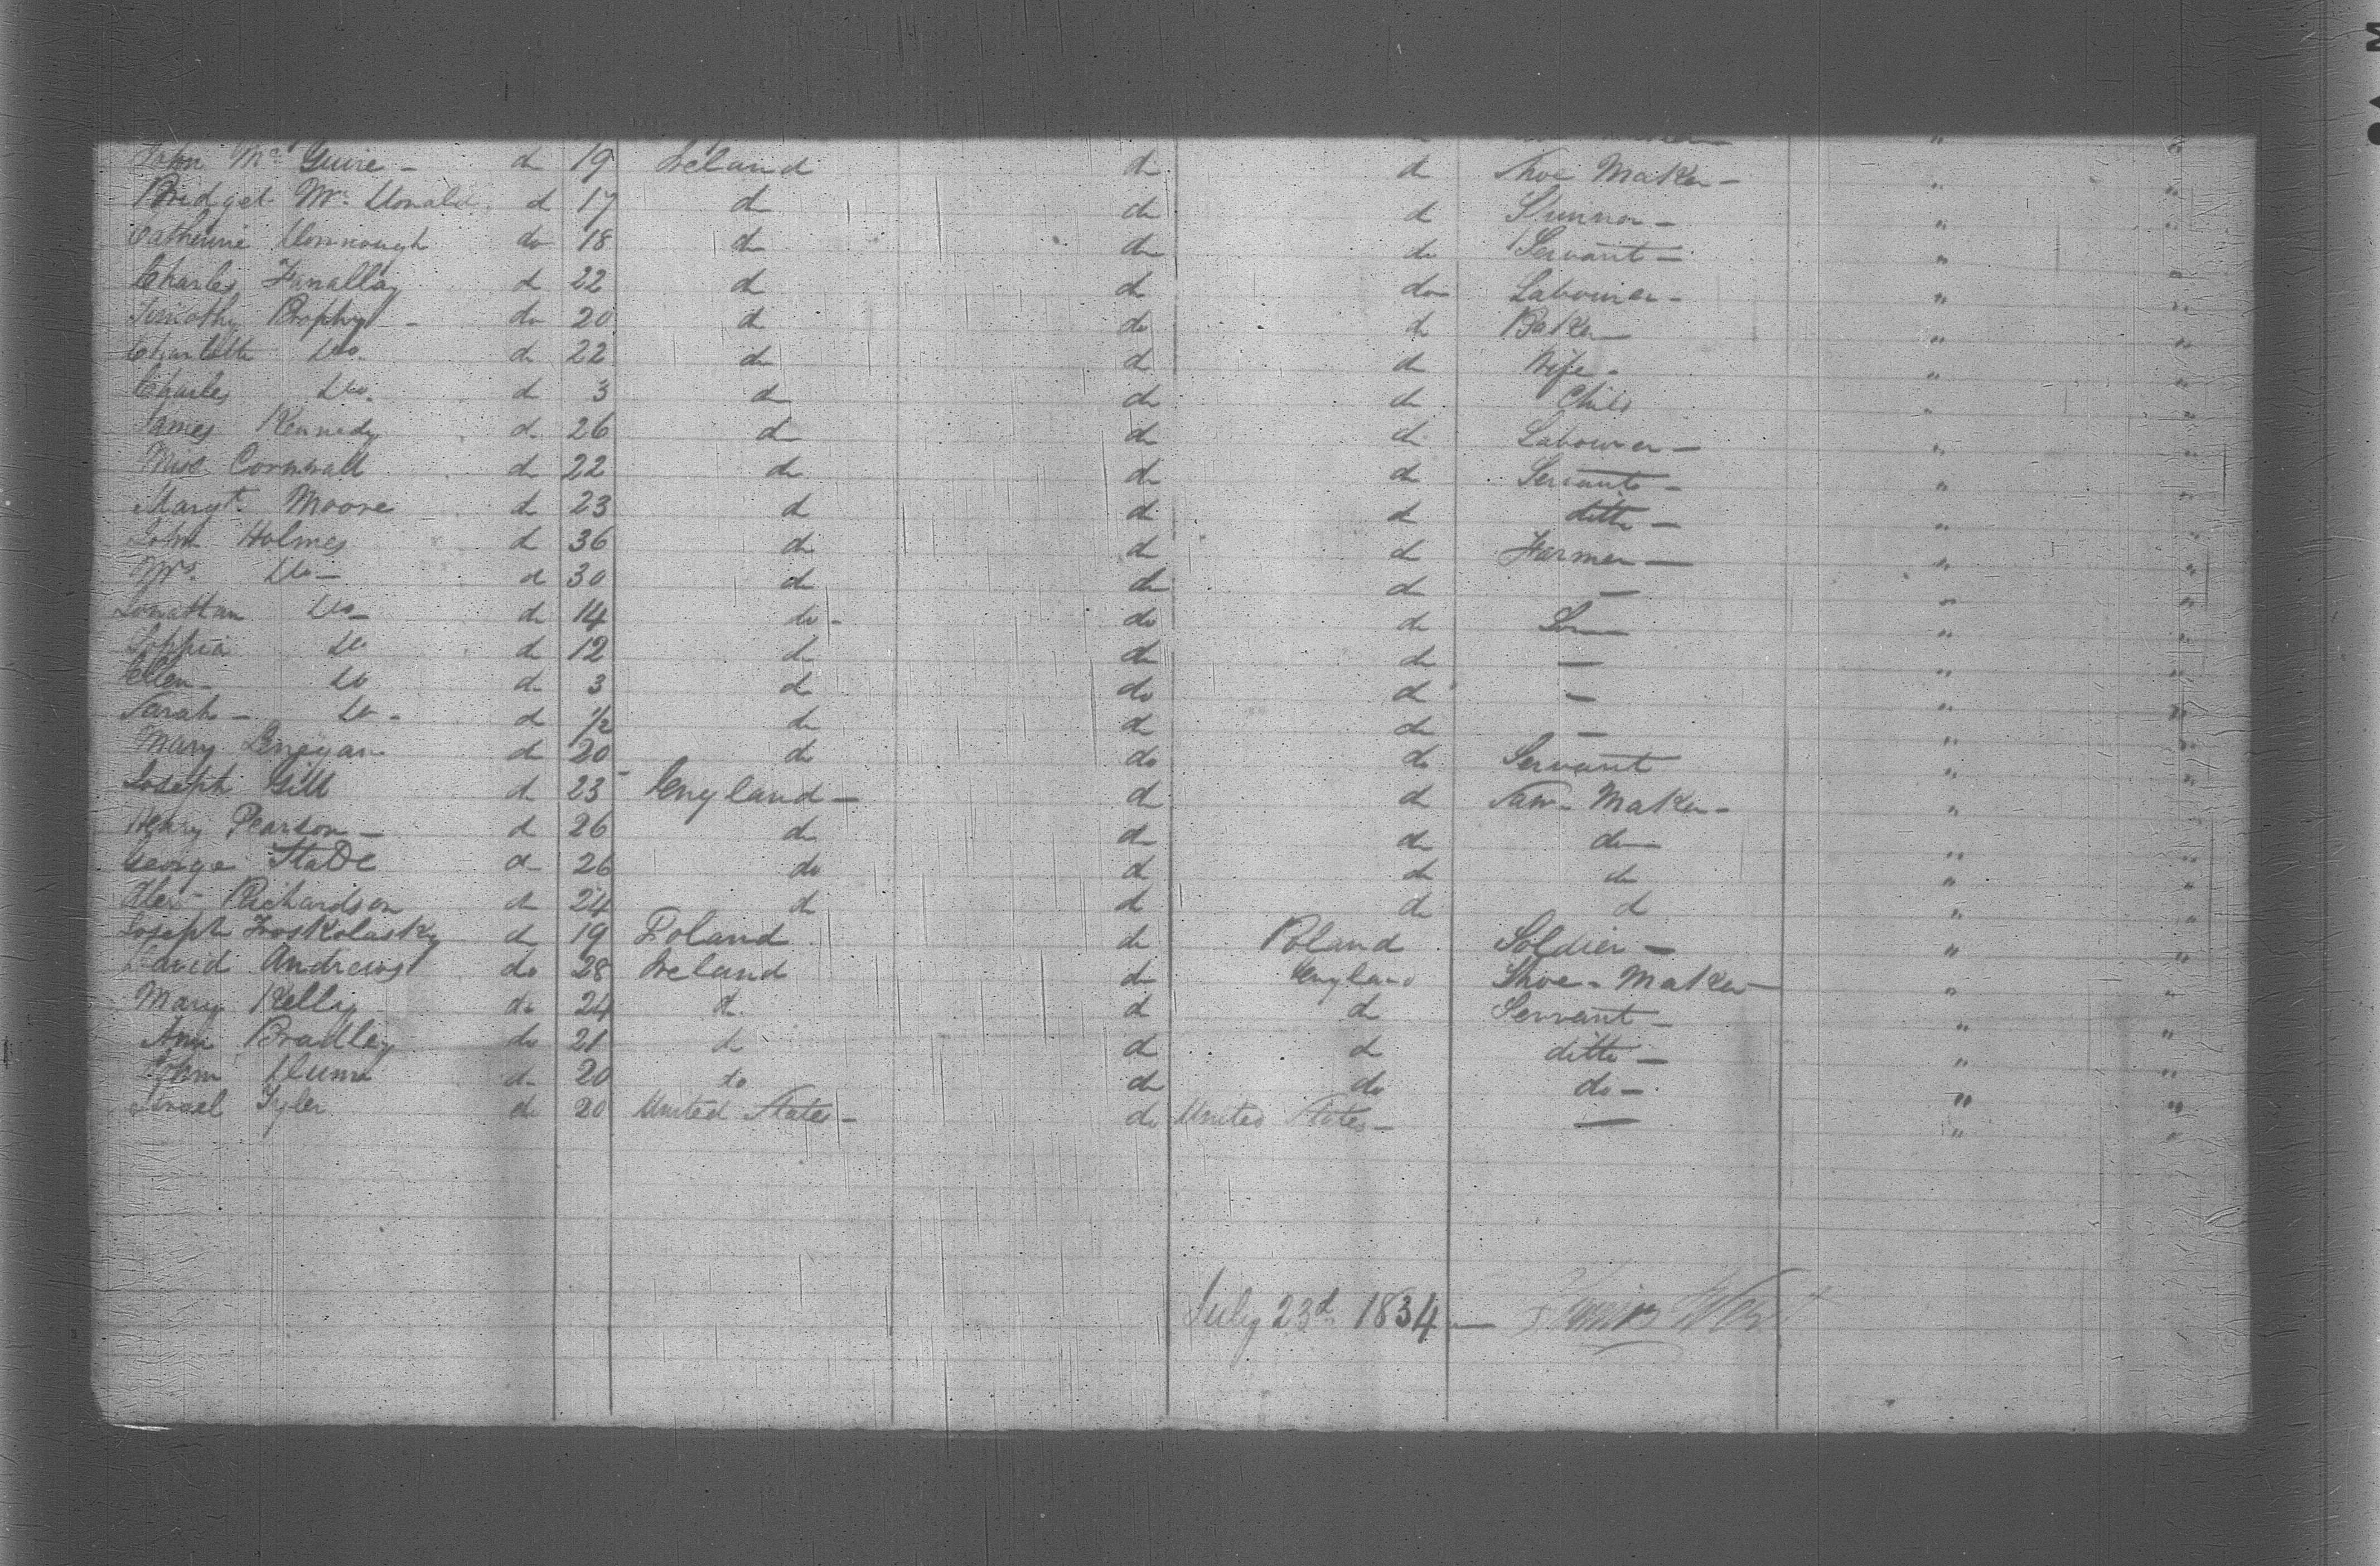 John McGuire - do 19 Ireland do do Shoe Maker - " "
Bridget McDonald do 17 do do do Spinner - " "
Catherine Donnough do 18 do do do Servant - " "
Charles Finallay do 22 do do do Labourer - " "
Timothy Brophy - do 20 do do do Baker " "
Charlotte Do. do 22 do do do Wife - " "
Charles Do. do 3 do do do Child " "
James Kennedy do 26 do do do Labourer - " "
Miss Cornwall do 22 do do do Servant - " "
Margt. Moore do 23 do do do ditto - " "
John Holmes do 36 do do do Farmer - " "
Mrs. Do - do 30 do do do - " "
Jonathan Do - do 14 do - do do Son " "
Sophia Do do 12 do do do - " "
Ellen - Do do 3 do do do - " "
Sarah - Do - do 1/2 do do do - " "
Mary do 20 do do do Servant " "
Joseph Gill do 23 England - do do Saw - Maker - " "
Henry Pearson - do 26 do do do do " "
George Slade do 26 do do do do " "
Alexr Richardson do 24 do do do do " "
Joseph do 19 Poland do Poland Soldier - " "
David Andrews do 28 Ireland do England Shoe - Maker " "
Mary Kelly do 24 do do do Servant - " "
Ann Bradley do 21 do do do ditto - " "
John Dunn do 20 do do do do - " "
Israel Tyler do 20 United States - do United States - - " "
July 23d 1834 -